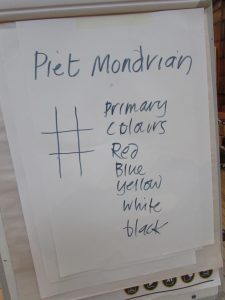 Piet Mondrian
Primary
Colours
Red
Blue
Yellow
White
black